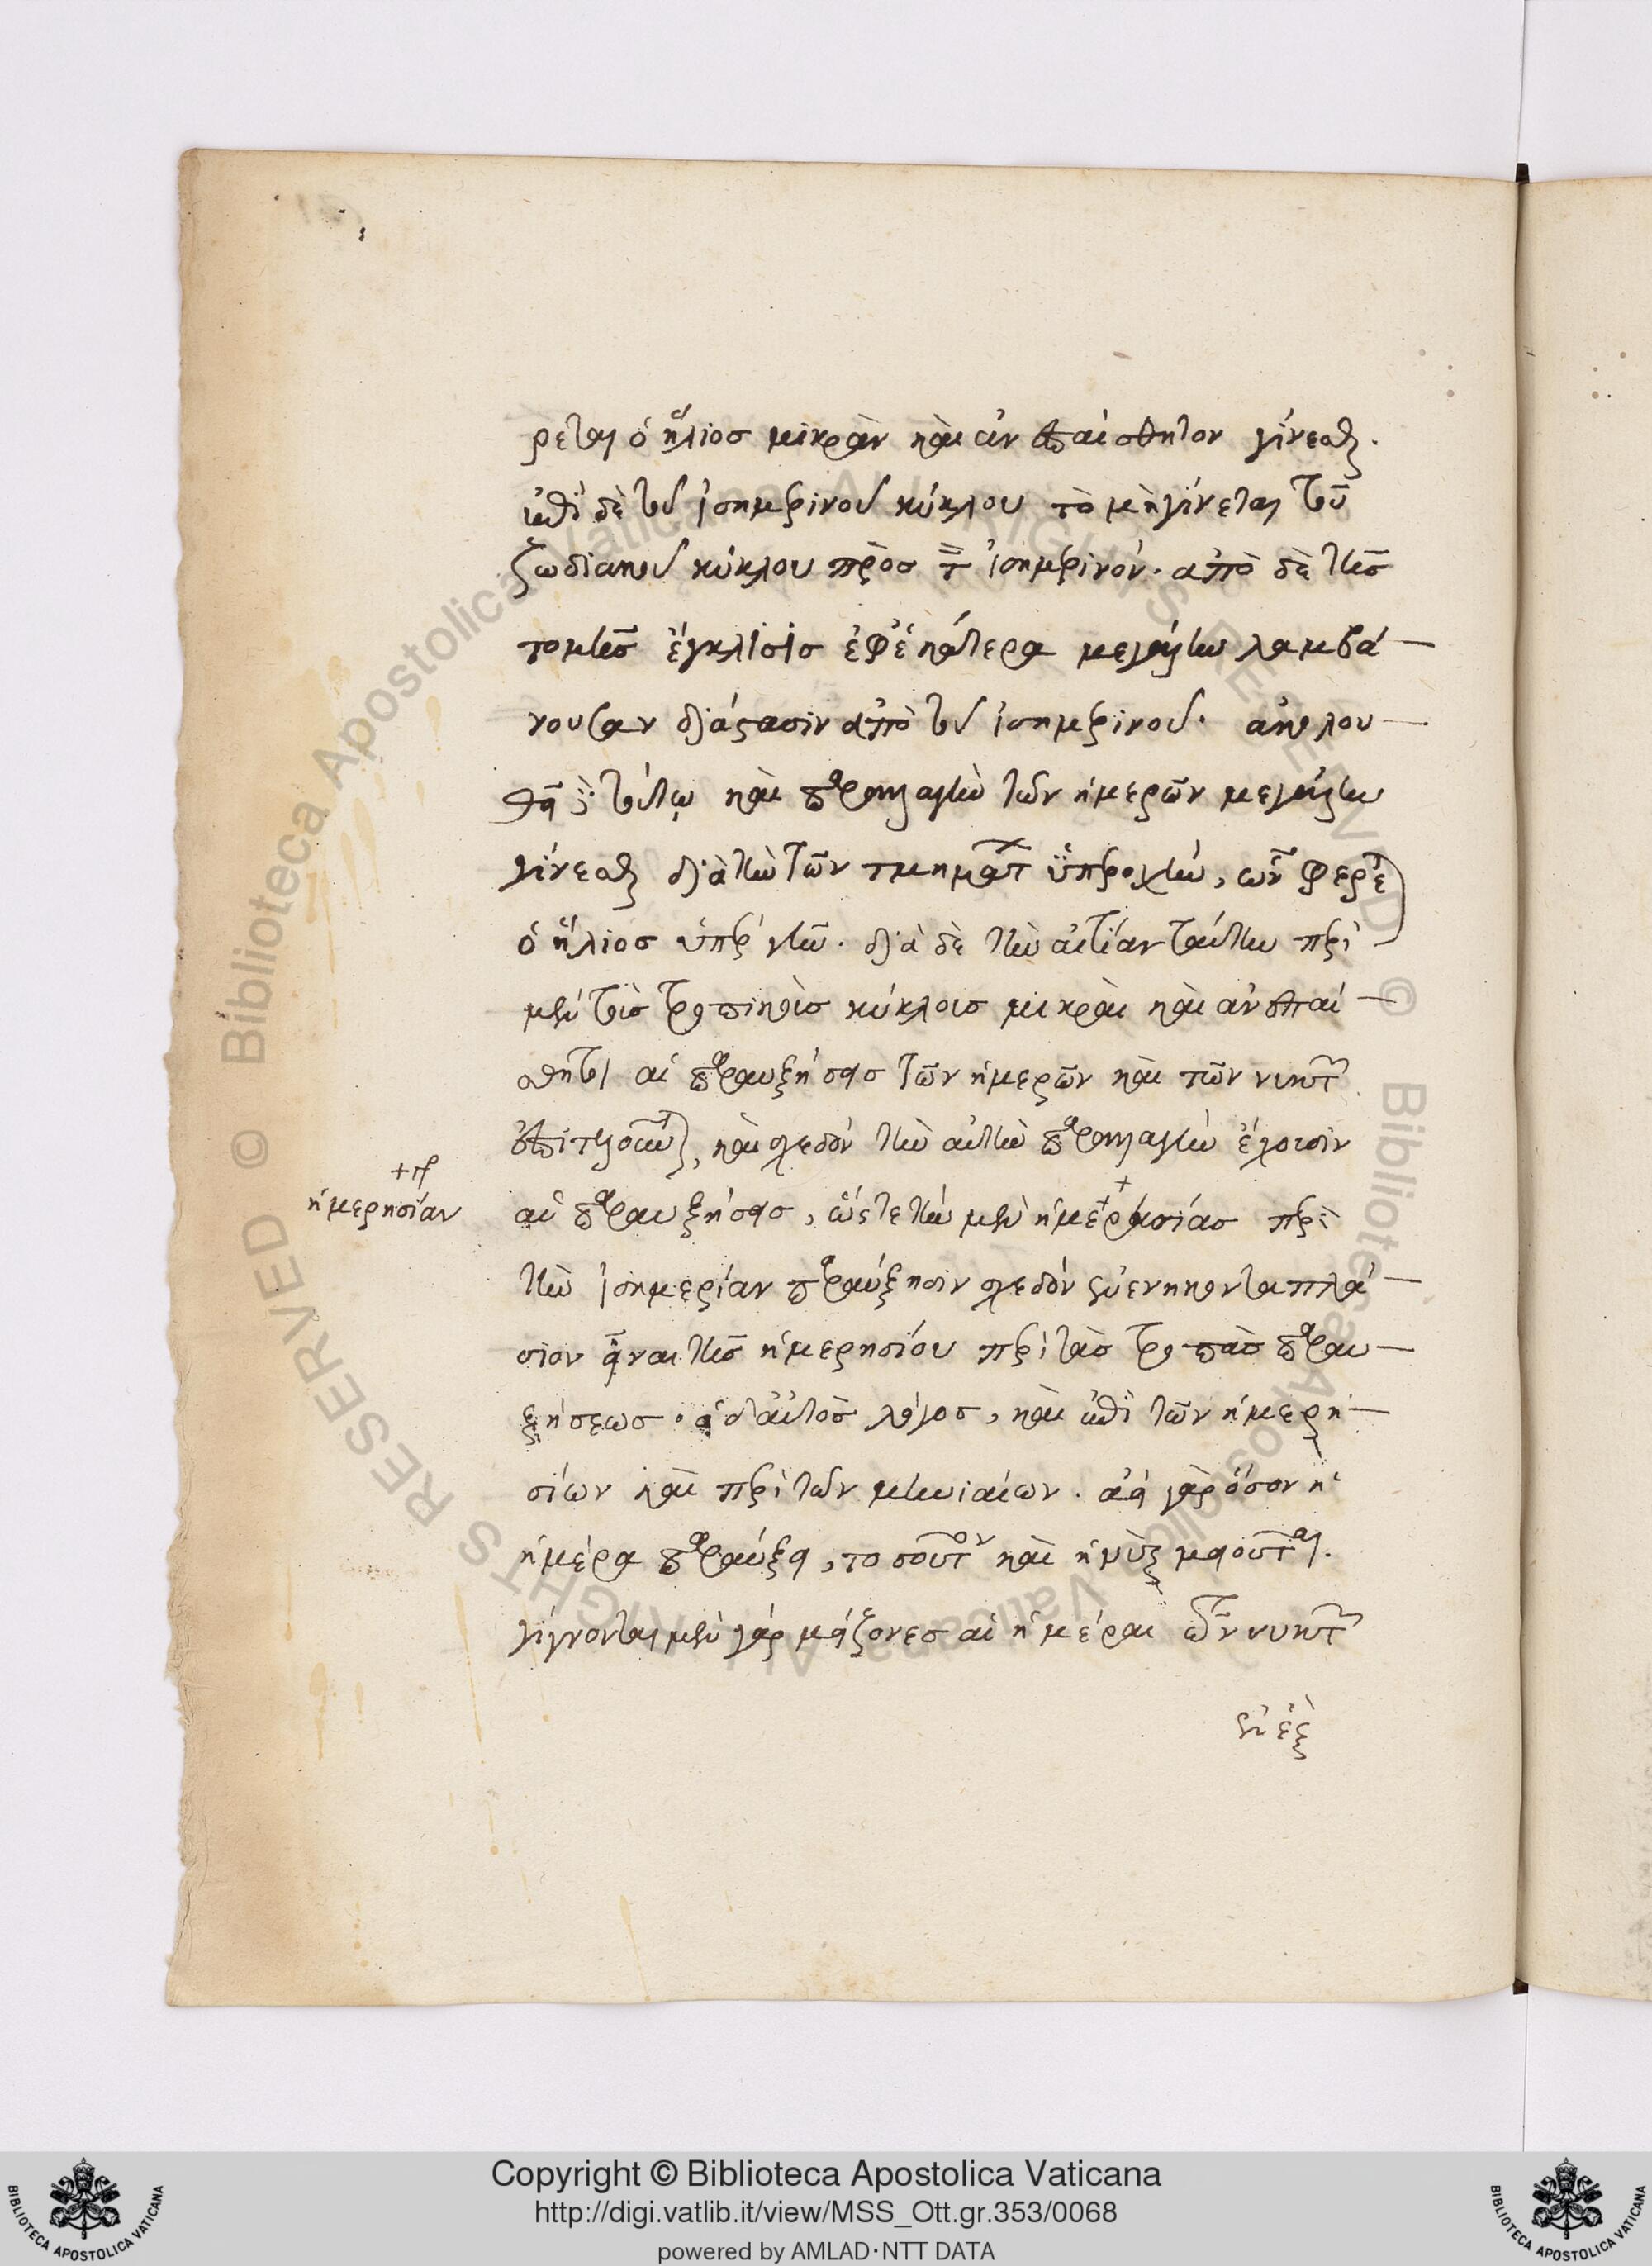 ρεται ὁ ἥλιος μικρὰν καὶ ἀνεπαίσθητον γίνεσθαι.
ἐπὶ δὲ τοῦ ἰσημερινοῦ κύκλου τομὴ γίνεται τοῦ
ζωδιακοῦ κύκλου πρὸς τὸν ἰσημερινόν. ἀπὸ δὲ τῆς
τομῆς ἔγκλισις ἐφ' ἑκάτερα μεγάλην λαμβά-
νουσαν διάστασιν ἀπὸ τοῦ ἰσημερινοῦ. ἀκολου-
θεῖ δὲ τούτῳ καὶ παραλλαγὴν τῶν ἡμερῶν μεγάλην
γίνεσθαι διὰ τὴν τῶν τμημάτων ὑπεροχήν, ὧν φέρε
ὁ ἥλιος ὑπὲρ γῆν. διὰ δὲ τὴν αἰτίαν ταύτην περὶ
μὲν τοῖς τροπικοῖς κύκλοις μικραὶ καὶ ἀνεπαί-
σθητοι αἱ παραυξήσεις τῶν ἡμερῶν καὶ τῶν νυκτῶν
ἐπιτελοῦνται, καὶ σχεδὸν τὴν αὐτὴν παραλλαγὴν ἔχουσιν
αἱ παραυξήσεις, ὥστε τὴν μὲν ἡμερησίας περὶ
+ γρ
ἡμερησίαν
τὴν ἰσημερίαν παραύξησιν σχεδὸν ἐνενηκονταπλά-
σιον εἶναι τῆς ἡμερησίου περὶ τὰς τροπὰς παραυ-
ξήσεως. ὁ δ' αὐτὸς λόγος, καὶ ἐπὶ τῶν ἡμερη-
σίων καὶ περὶ τῶν μηνιαίων. ἀεὶ γὰρ ὅσον ἡ
ἡμέρα παραύξει, τοσοῦτον καὶ ἡ νὺξ μειοῦται.
γίγνονται μὲν γὰρ μείζονες αἱ ἡμέραι τῶν νυκτῶν
Copyright © Biblioteca Apostolica Vaticana
http://digi.vatlib.it/view/MSS_Ott.gr.353/0068
powered by AMLAD·NTT DATA